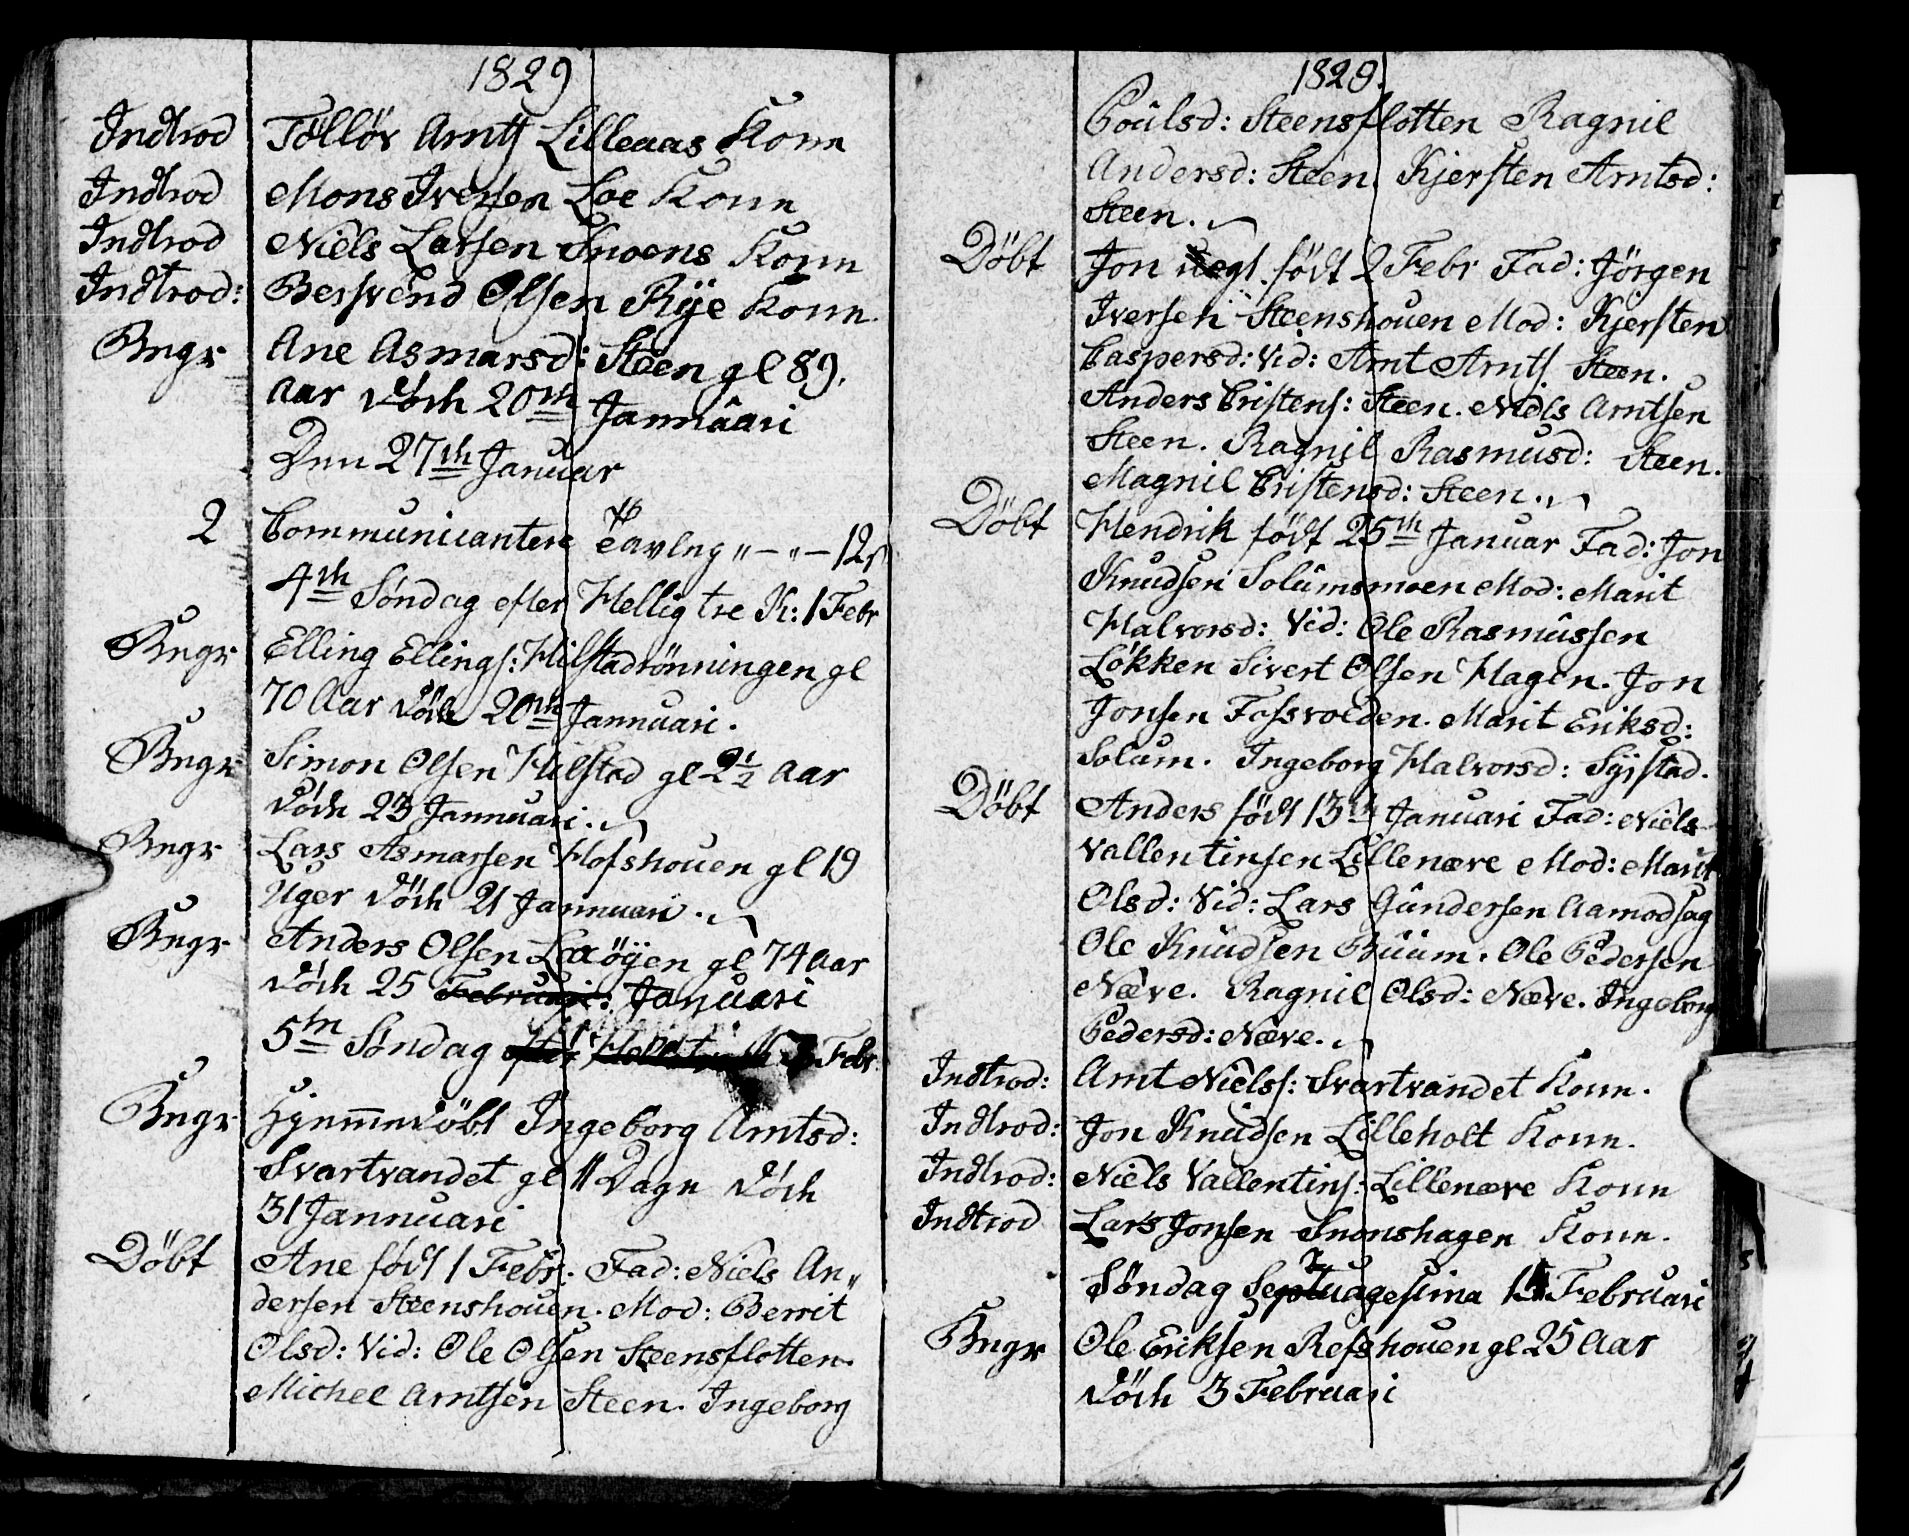 1829
Indtrod Töllöv Arntf Lilleaas Konn
Indtrod Mons Iversen Loe Konn
Indtrod Niels Larsen Snoens Konn
Indtrod: Bersvend Olsen Rÿe Konn.
Bngr Ane Asmarsd: Steen gl 89.
Aar döde 20th Jannuari
Den 27th Januar
2 Communicantere Tavlng „ – „ – 12 s
4th Søndag efter Hellig tre K: 1 Febr
Bngr Elling Ellings: Hilstadrönningen gl
70 Aar död 20th Jannuari.
Bngr Simon Olsen Hilstad gl 2½ Aar
död 23 Jannuari.
Bngr Lars Asmarsen Hofshouen gl 19
Uger död 21 Jannuari.
Bngr Anders Olsen Lxöÿen gl 74 Aar
död 25 Februari: Januari
5th Søndag efter Febr
Bngr Hjemmedöbt Ingeborg Arntsd:
Svartvandet gl 11 Dage död
31 Jannuari
Döbt Ane födt 1 Febr: Fad: Niels An„
dersen Steenshouen. Mod: Berrit
Olsd: Vid: Ole Olsen Steensflotten.
Michel Arntsen Steen. Ingeborg
1829.
Poulsd: Steensflotten Ragnil
Andersd: Steen. Kjersten Arntsd:
Steen.
Döbt Jon uegt. födt 2 Febr Fad: Jörgen
Iversen Steenshouen Mod: Kjersten
Caspersd: Vid: Arnt Arnts Steen.
Anders Cristens: Steen. Niels Arntsen
Steen. Ragnil Rasmusd: Steen.
Magnil Cristensd: Steen.
Döbt Hendrik födt 25th Januar Fad: Jon
Knudsen Solumsmoen Mod: Marit
Halvorsd: Vid: Ole Rasmussen
Løkken Sivert Olsen Hagen. Jon
Jonsen Fossvolden. Marit Eriksd:
Solum. Ingeborg Halvorsd: Syrstad.
Döbt Anders födt 13th Januari Fad: Niels
Vallentinsen Lillenæve Mod: Marit
Olsd: Vid: Lars Gundersen Aamodsag
Ole Knudsen Buum. Ole Pedersen
Næve. Ragnil Olsd: Næve. Ingeborg
Pedersd: Næve.
Indtrod: Arnt Niels: Svartvandet Konn.
Indtrod: Jon Knudsen Lilleholt Konn.
Indtrod: Niels Vallentins: Lillenæve Konn
Indtrod Lars Jonsen Snoenshagen Konn.
Søndag Septuagesima Februari
Bngr Ole Eriksen Refshouen gl 25 Aar
död 3 Februari